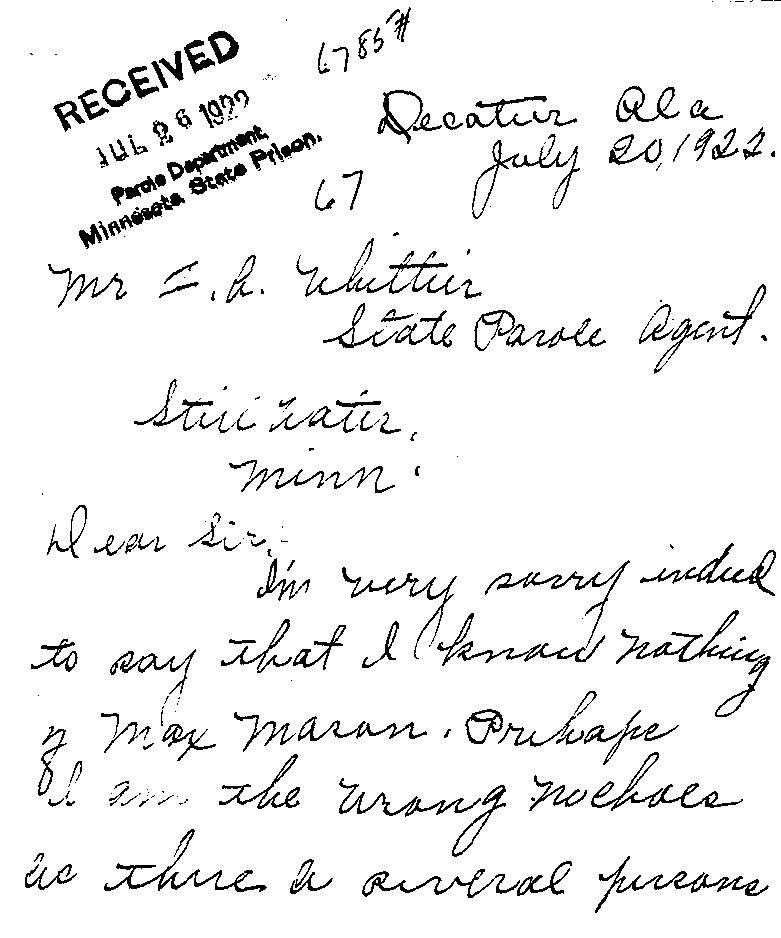 RECEIVED
JUL 26 1922
Parole Department,
Minnesota State Prison.
6785#
67
Decatur Ala
July 20, 1922.
Mr F. A. Whittier
State Parole Agent.
Stillwater,
Minn.
Dear Sir,
I'm very sorry indeed
to say that I know nothing
of Max Mason. Prehaps
I am the wrong
as there a several persons